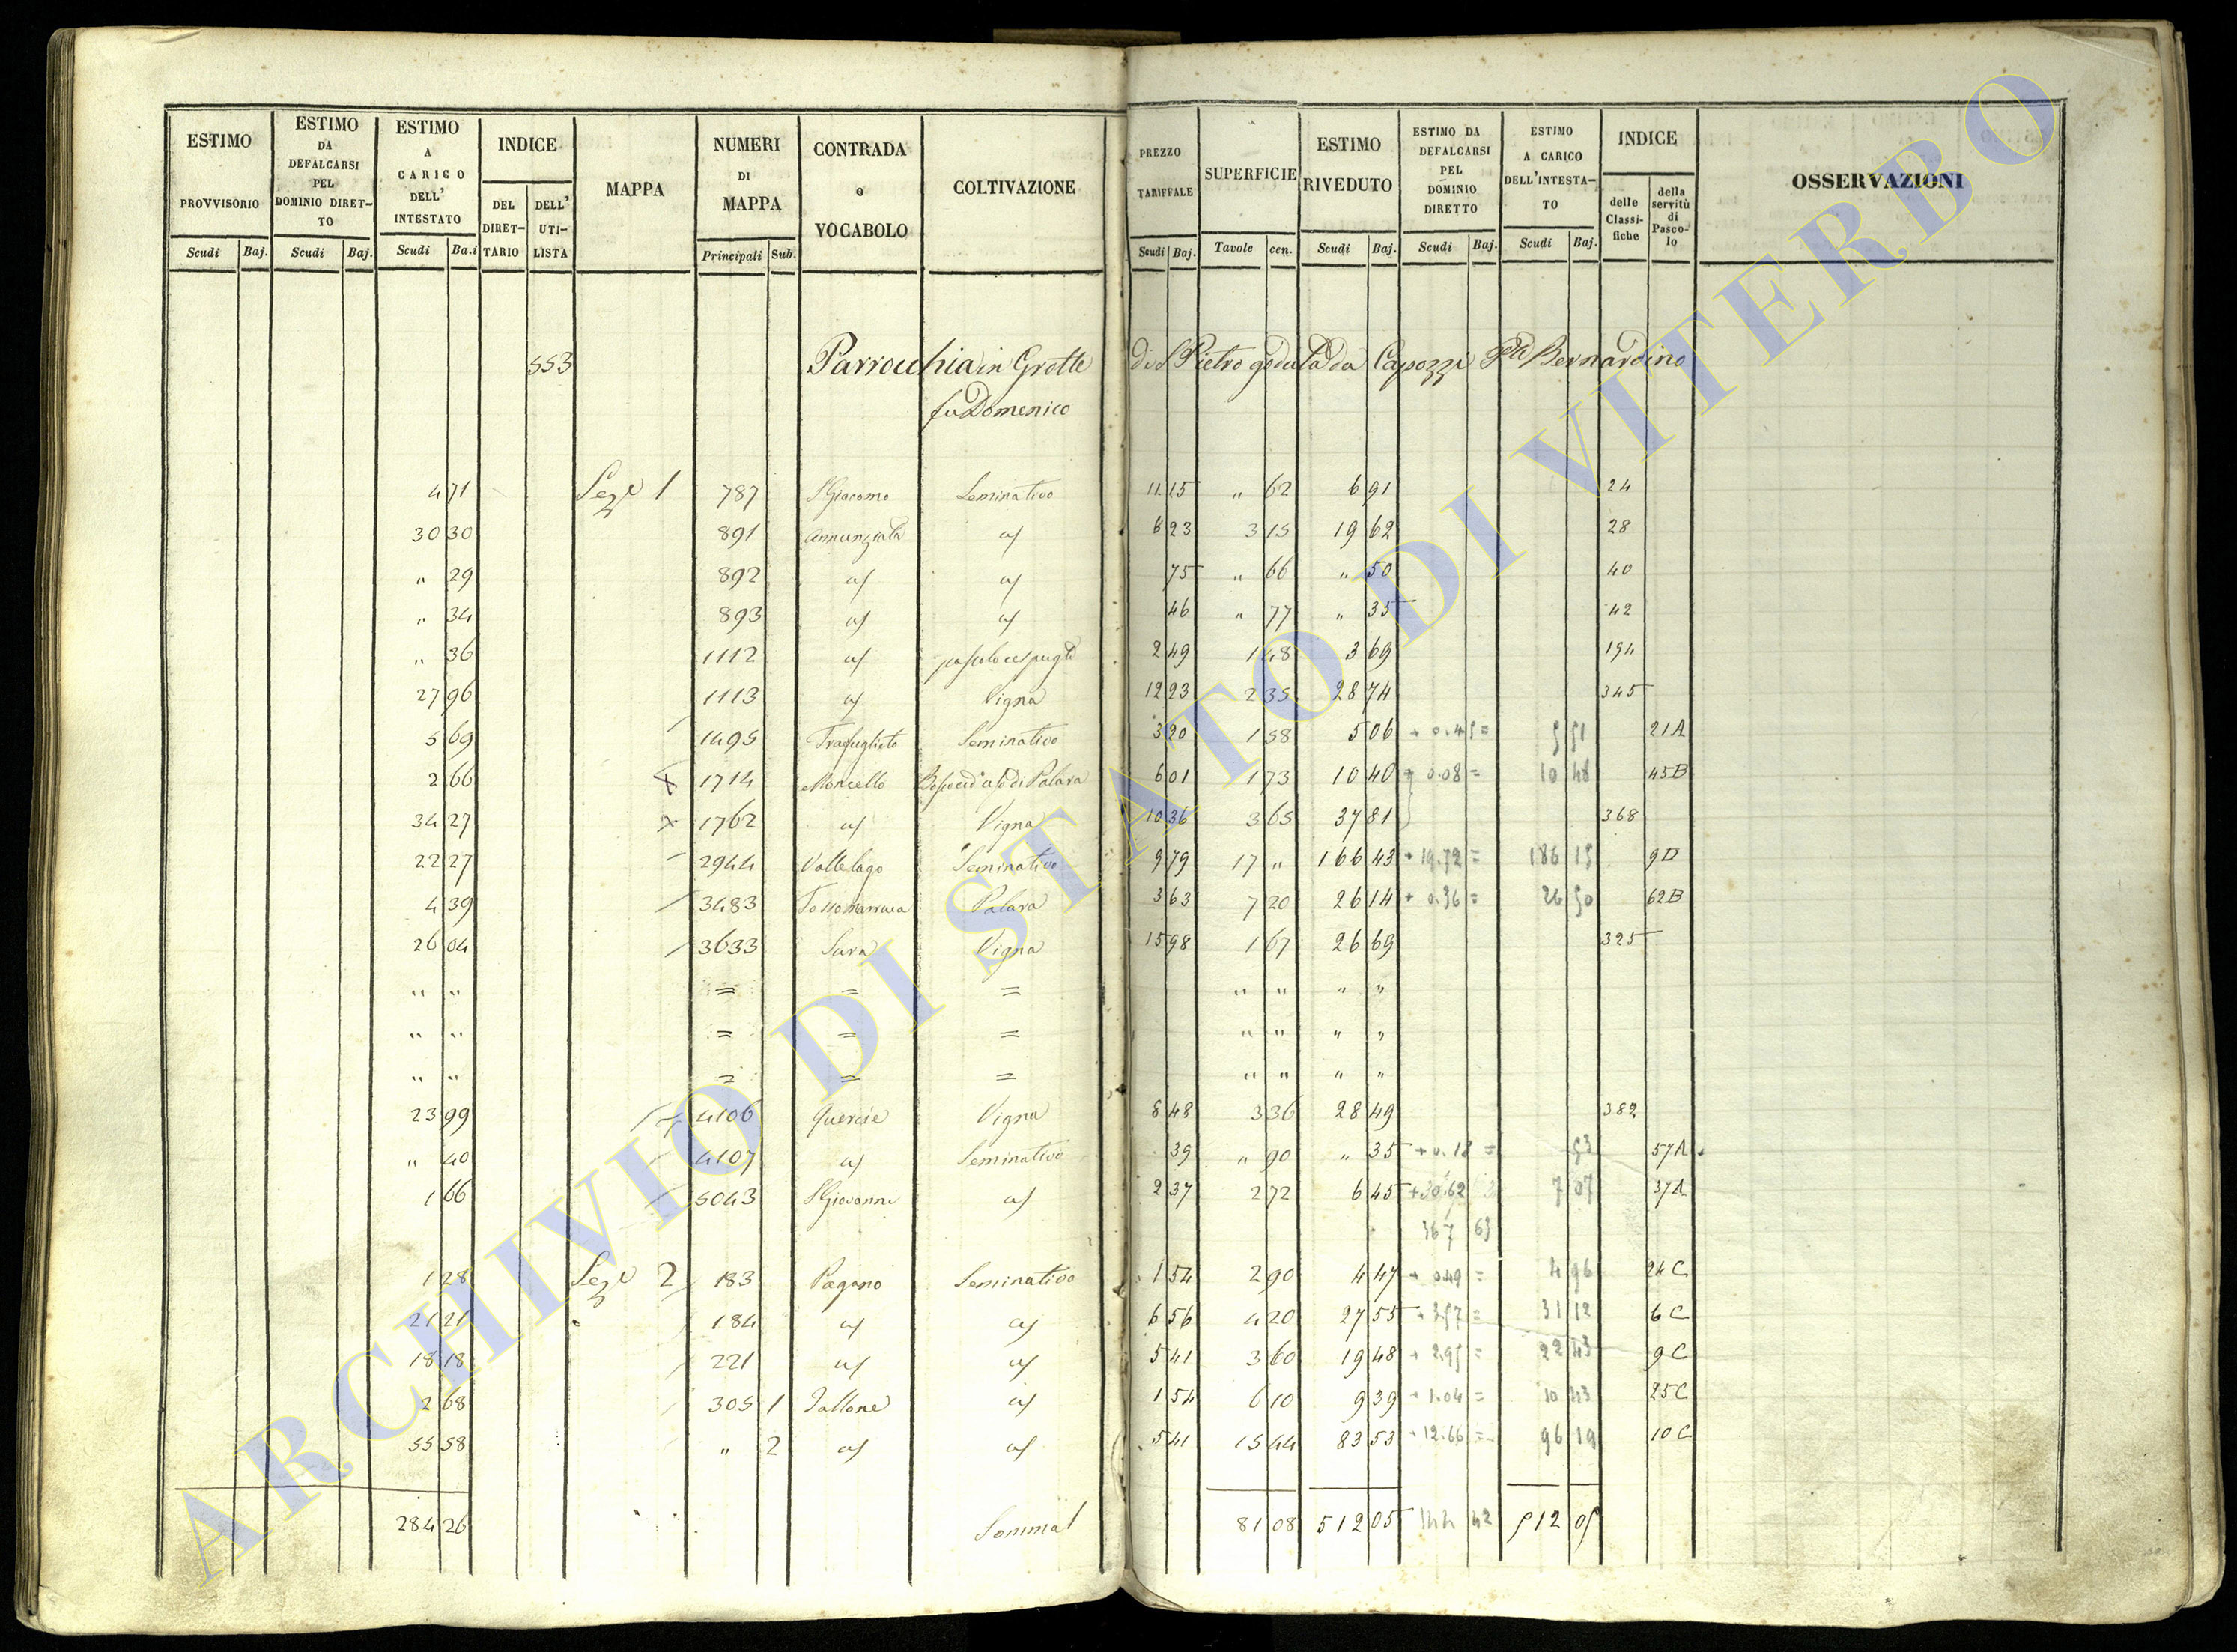 ESTIMO PROVVISORIO Scudi Baj.
ESTIMO DA DEFALCARSI PEL DOMINIO DIRET-TO Scudi Baj.
ESTIMO A CARICO DELL' INTESTATO Scudi Ba.i
INDICE DEL DIRET-TARIO DELL' UTI-LISTA
MAPPA
NUMERI DI MAPPA Principali Sub.
CONTRADA e VOCABOLO
COLTIVAZIONE
PREZZO TARIFFALE Scudi Baj.
SUPERFICIE Tavole cen.
ESTIMO RIVEDUTO Scudi Baj.
ESTIMO DA DEFALCARSI PEL DOMINIO DIRETTO Scudi Baj.
ESTIMO A CARICO DELL'INTESTA-TO Scudi Baj.
INDICE delle Classi-fiche della servitù di Pasco-lo
OSSERVAZIONI
553 Parrocchia in Grotte di S Pietro goduta da Capozzi Bernardino
fu Domenico
4 71 Sez.e 1 787 S Giacomo Seminativo 11 15 " 62 6 91 24
30 30 891 Annunziata a/ 6 23 3 15 19 62 28
" 29 892 a/ a/ 75 " 66 " 50 40
" 34 893 a/ a/ 46 " 77 " 35 42
" 36 1112 a/ 2 49 1 48 3 69 194
27 96 1113 a/ Vigna 12 23 2 35 28 74 345
5 69 1495 Seminativo 3 20 1 58 5 06 + 0.45 = 5 51 21A
2 66 1714 Moncello 6 01 1 73 10 40 + 0.08 = 10 48 45B
34 27 1762 a/ Vigna 10 36 3 65 37 81 368
22 27 2944 Vallelago Seminativo 9 79 17 " 166 43 + 19.72 = 186 15 9D
4 39 3483 Palara 3 63 7 20 26 14 + 0.36 = 26 50 62B
26 04 3633 Sara Vigna 15 98 1 67 26 69 325
" " = = = " " " "
" " = = = " " " "
" " = = = " " " "
23 99 4106 Quercie Vigna 8 48 3 36 28 49 382
" 40 4107 a/ Seminativo 39 " 90 " 35 + 0.18 = 53 57A
1 66 5043 S Giovanni a/ 2 37 2 72 6 45 7 07 37A
367 63
1 28 Sez.e 2 183 Pagano Seminativo 1 54 2 90 4 47 + 0.49 = 4 96 24C
21 21 184 a/ a/ 6 56 4 20 27 55 + 3.57 = 31 12 6C
18 18 221 a/ a/ 5 41 3 60 19 48 + 2.95 = 22 43 9C
2 68 305 1 Vallone a/ 1 54 6 10 9 39 + 1.04 = 10 43 25C
55 58 " 2 a/ a/ 5 41 15 44 83 53 + 12.66 = 96 19 10C
284 26 Somma 81 08 512 05 144 42 512 05
ARCHIVIO DI STATO DI VITERBO